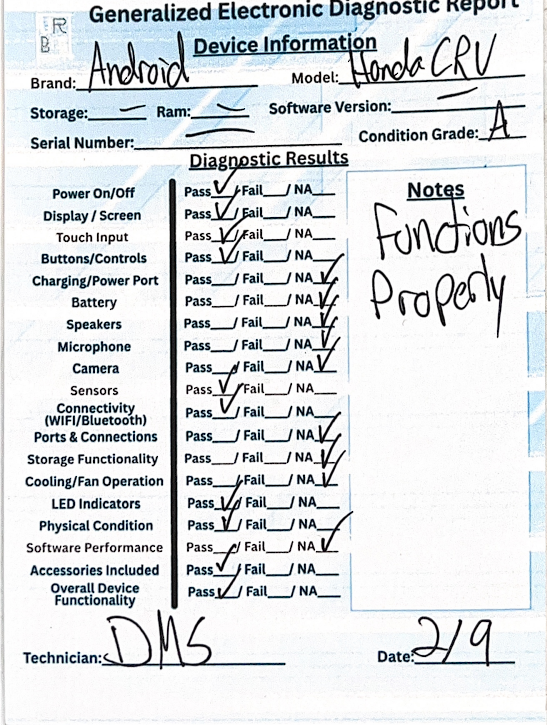 Generalized Electronic Diagnostic Report
R
B
Device Information
Brand: Android Model: Honda CRV
Storage: — Ram: — Software Version: —
Serial Number: — Condition Grade: A
Diagnostic Results
Power On/Off Pass ✓/ Fail___/ NA___
Display / Screen Pass ✓/ Fail___/ NA___
Touch Input Pass ✓/ Fail___/ NA___
Buttons/Controls Pass ✓/ Fail___/ NA___
Charging/Power Port Pass___/ Fail___/ NA ✓
Battery Pass___/ Fail___/ NA ✓
Speakers Pass___/ Fail___/ NA ✓
Microphone Pass___/ Fail___/ NA ✓
Camera Pass___/ Fail___/ NA ✓
Sensors Pass ✓/ Fail___/ NA___
Connectivity
(WIFI/Bluetooth) Pass ✓/ Fail___/ NA___
Ports & Connections Pass___/ Fail___/ NA ✓
Storage Functionality Pass___/ Fail___/ NA ✓
Cooling/Fan Operation Pass___/ Fail___/ NA ✓
LED Indicators Pass ✓/ Fail___/ NA___
Physical Condition Pass ✓/ Fail___/ NA___
Software Performance Pass___/ Fail___/ NA ✓
Accessories Included Pass ✓/ Fail___/ NA___
Overall Device
Functionality Pass ✓/ Fail___/ NA___
Notes
Functions
Properly
Technician: DMS Date: 2/9